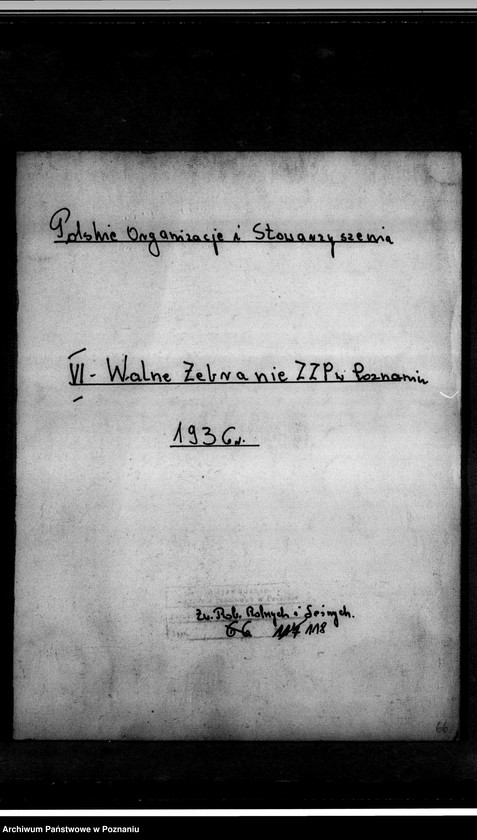 Polskie Organizacje i Stowarzyszenia
VI - Walne Zebranie ZZP w Poznaniu
1936 r.
Zw. Rob. Rolnych i Leśnych.
66 118
66
Archiwum Państwowe w Poznaniu